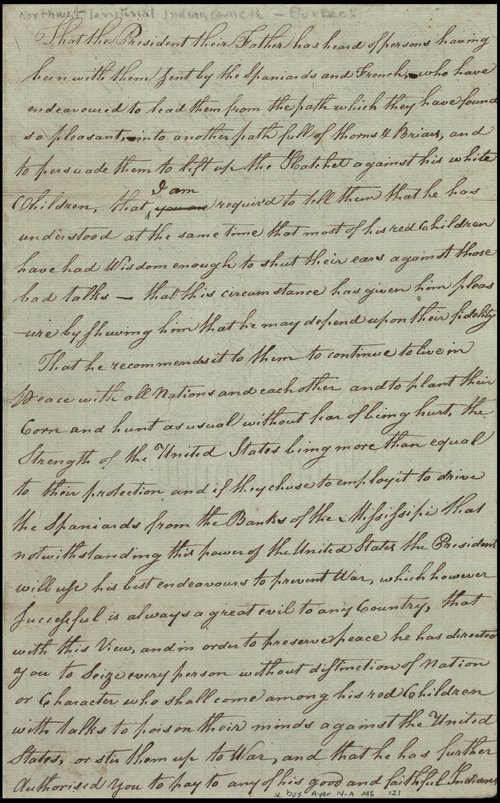 Northwest Territorial Indian Council
That the President their Father has heard of persons having
been with them sent by the Spaniards and French, who have
endeavoured to lead them from the path which they have found
so pleasant, into another path full of thorns & Briars, and
to persuade them to lift up the Hatchet against his white
Children, that I am you are requir'd to tell them that he has
understood at the same time that most of his red Children
have had Wisdom enough to shut their ears against those
bad talks — that this circumstance has given him pleas
-ure by shewing him that he may depend upon their fidelity
That he recommends it to them to continue to live in
Peace with all Nations and each other and to plant their
Corn and hunt as usual without fear of being hurt, the
Strength of the United States being more than equal
to their protection and if they chuse to employ it to drive
the Spaniards from the Banks of the Missisipi that
notwithstanding this power of the United States the President
will use his best endeavours to prevent War, which however
Successful is always a great evil to any Country, that
with this View, and in order to preserve peace he has directed
you to Seize every person without distinction of Nation
or Character who shall come among his red Children
with talks to poison their minds against the United
States, or stir them up to War, and that he has further
Authorised You to pay to any of his good and faithful Indians
box Ayer N.A MS 121